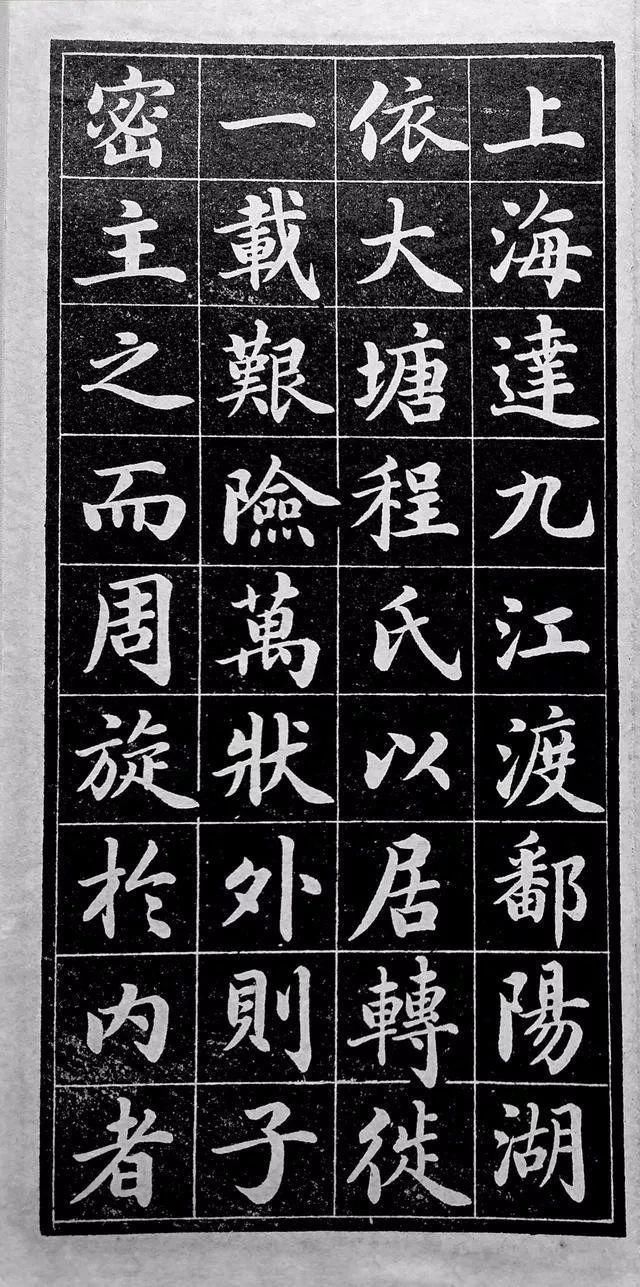 上海達九江渡鄱陽湖
依大塘程氏以居轉徙
一載艱險萬狀外則子
密主之而周旋於内者